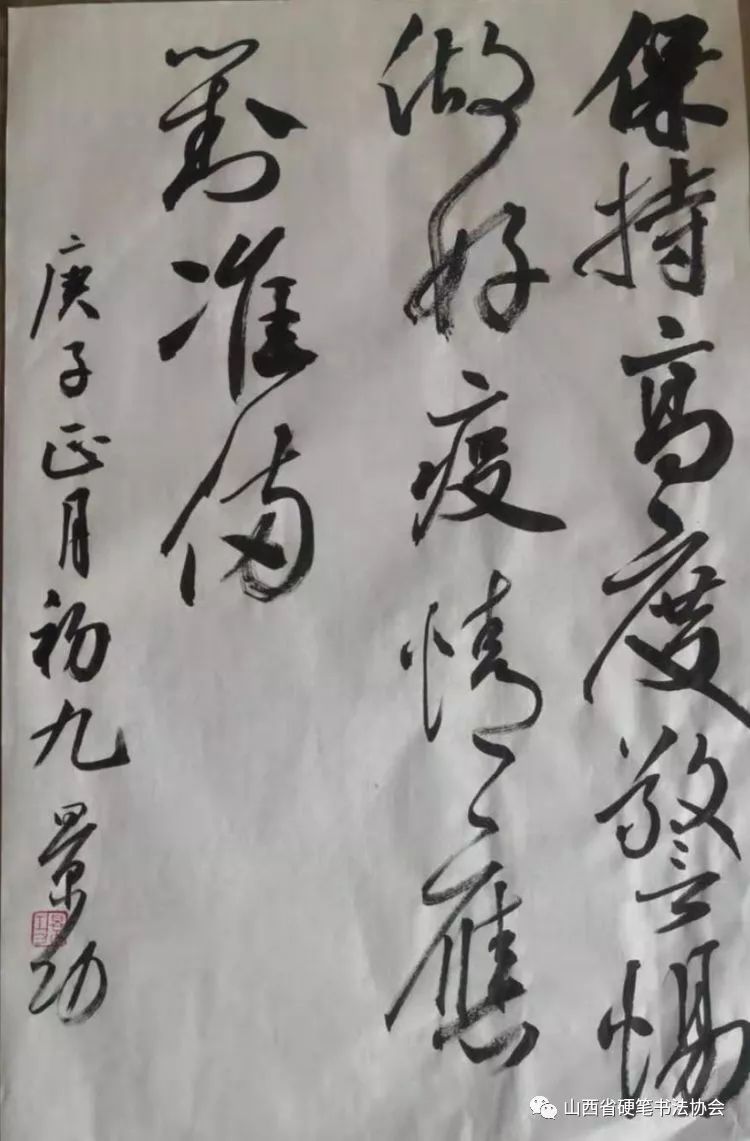 保持高度警惕
做好疫情應
對准俻
庚子正月初九 景功
山西省硬笔书法协会